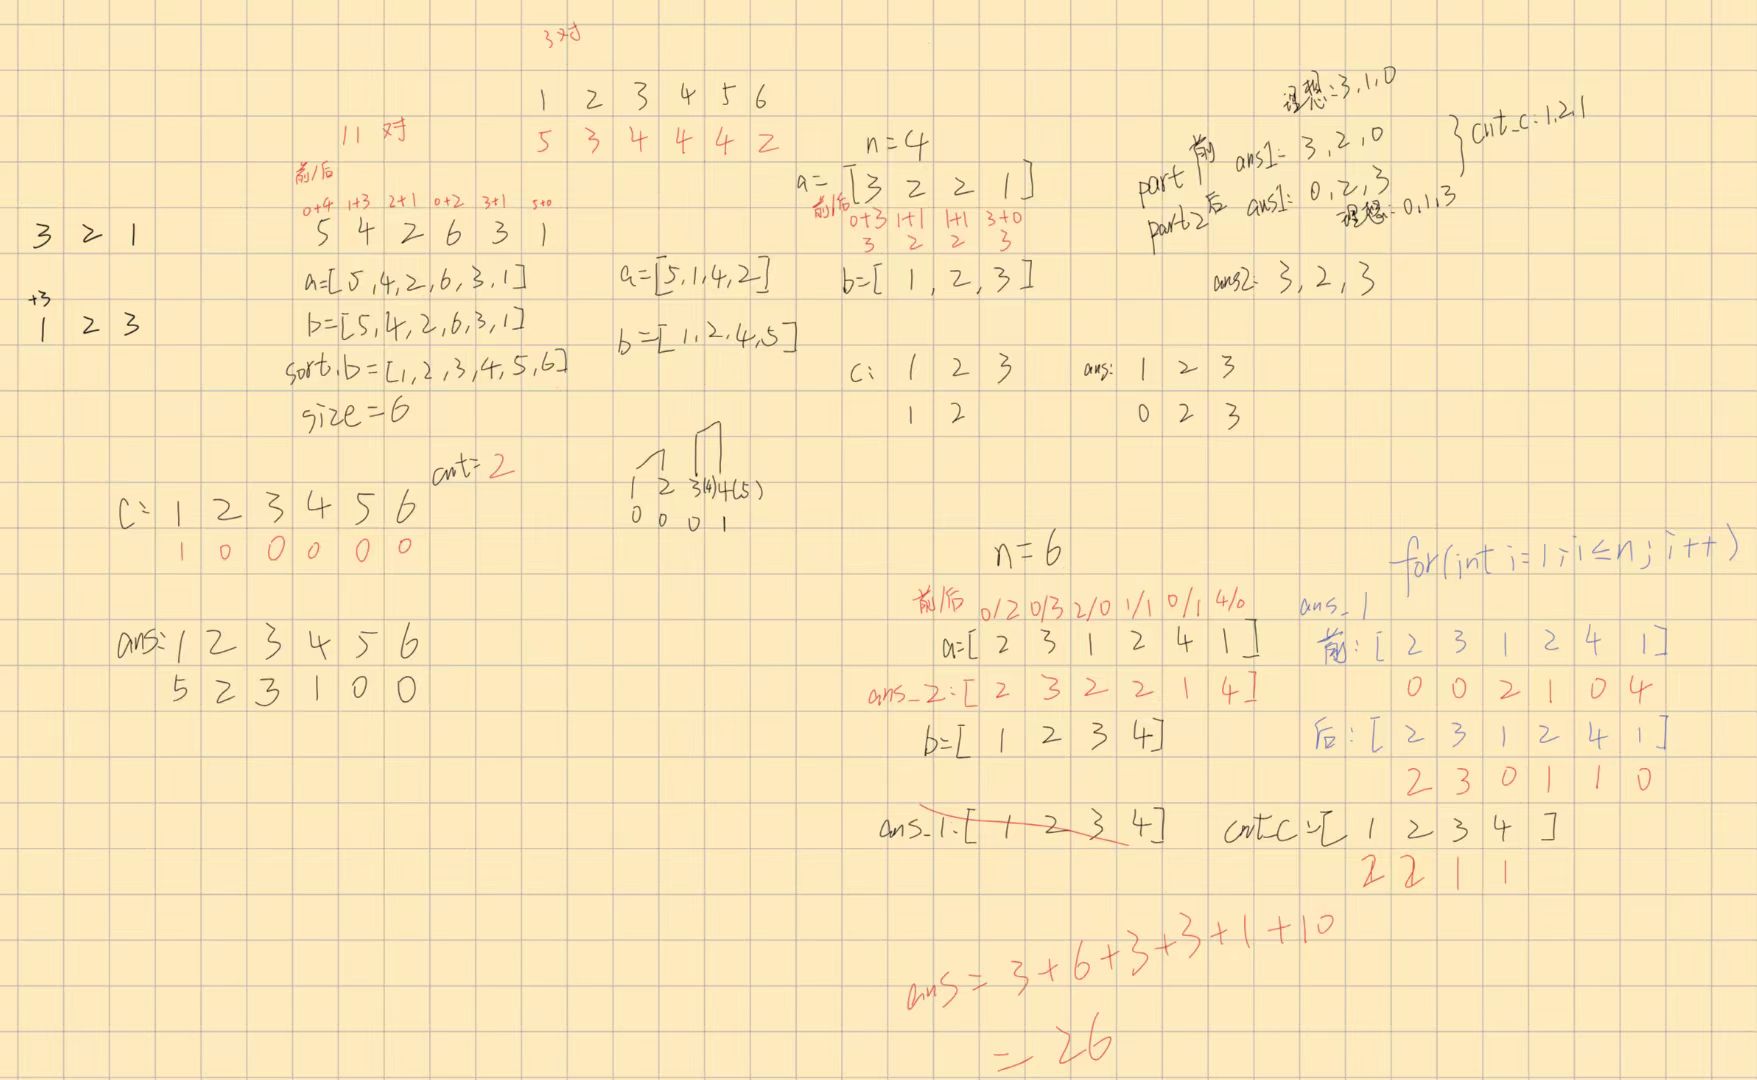 3对
1 2 3 4 5 6
5 3 4 4 4 2
11 对
前/后
0+4 1+3 2+1 0+2 3+1 5+0
5 4 2 6 3 1
a=[5,4,2,6,3,1]
b=[5,4,2,6,3,1]
sort.b=[1,2,3,4,5,6]
size=6
3 2 1
+3
1 2 3
a=[5,1,4,2]
b=[1,2,4,5]
n=4
a=[3 2 2 1]
前/后 0+3 1+1 1+1 3+0
3 2 2 3
b=[1,2,3]
c: 1 2 3
1 2
ans: 1 2 3
0 2 3
理想:3,1,0
part1前 ans1: 3,2,0
part2后 ans1: 0,2,3
理想:0,1,3
cnt_c:1,2,1
ans2: 3,2,3
cnt=2
C: 1 2 3 4 5 6
1 0 0 0 0 0
ans: 1 2 3 4 5 6
5 2 3 1 0 0
1 2 3(4) 4(5)
0 0 0 1
n=6
前/后 0/2 0/3 2/0 1/1 0/1 4/0
a=[2 3 1 2 4 1]
ans_2:[2 3 2 2 1 4]
b=[1 2 3 4]
ans_1:[1 2 3 4]
for(int i=1;i≤n;i++)
ans_1
前:[2 3 1 2 4 1]
0 0 2 1 0 4
后:[2 3 1 2 4 1]
2 3 0 1 1 0
cnt_c:[1 2 3 4]
2 2 1 1
ans=3+6+3+3+1+10
=26